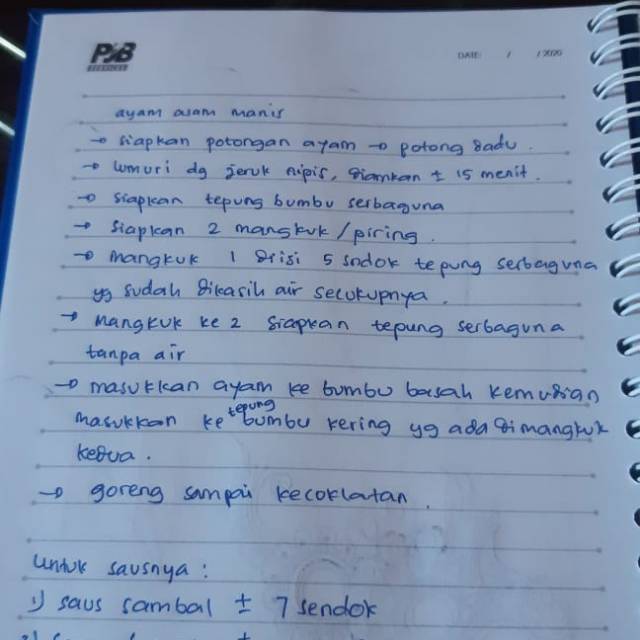 PJB
SERVICES
DATE: / / 2020
ayam asam manis
→ siapkan potongan ayam → potong dadu.
→ lumuri dg jeruk nipis, diamkan ± 15 menit.
→ siapkan tepung bumbu serbaguna
→ siapkan 2 mangkuk / piring.
→ mangkuk 1 diisi 5 sndok tepung serbaguna
yg sudah dikasih air secukupnya.
→ mangkuk ke 2 siapkan tepung serbaguna
tanpa air
→ masukkan ayam ke bumbu basah kemudian
masukkan ke tepung bumbu kering yg ada dimangkuk
kedua.
→ goreng sampai kecoklatan.
untuk sausnya :
1) saus sambal ± 7 sendok